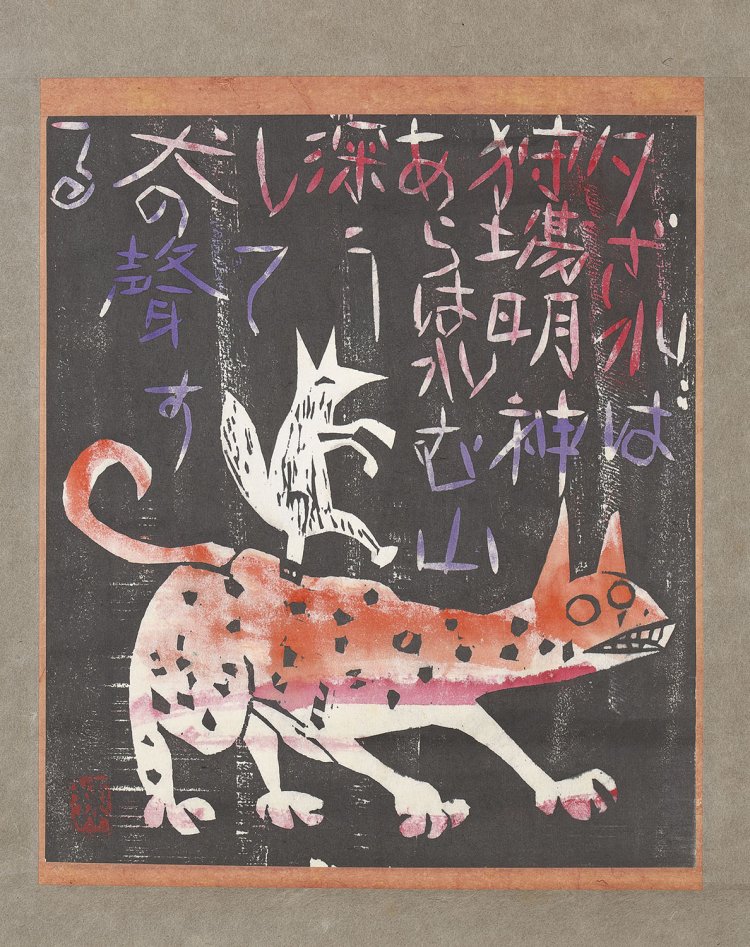 夕されば
狩場明神
あらはれむ山
深う
して
犬の聲す
る